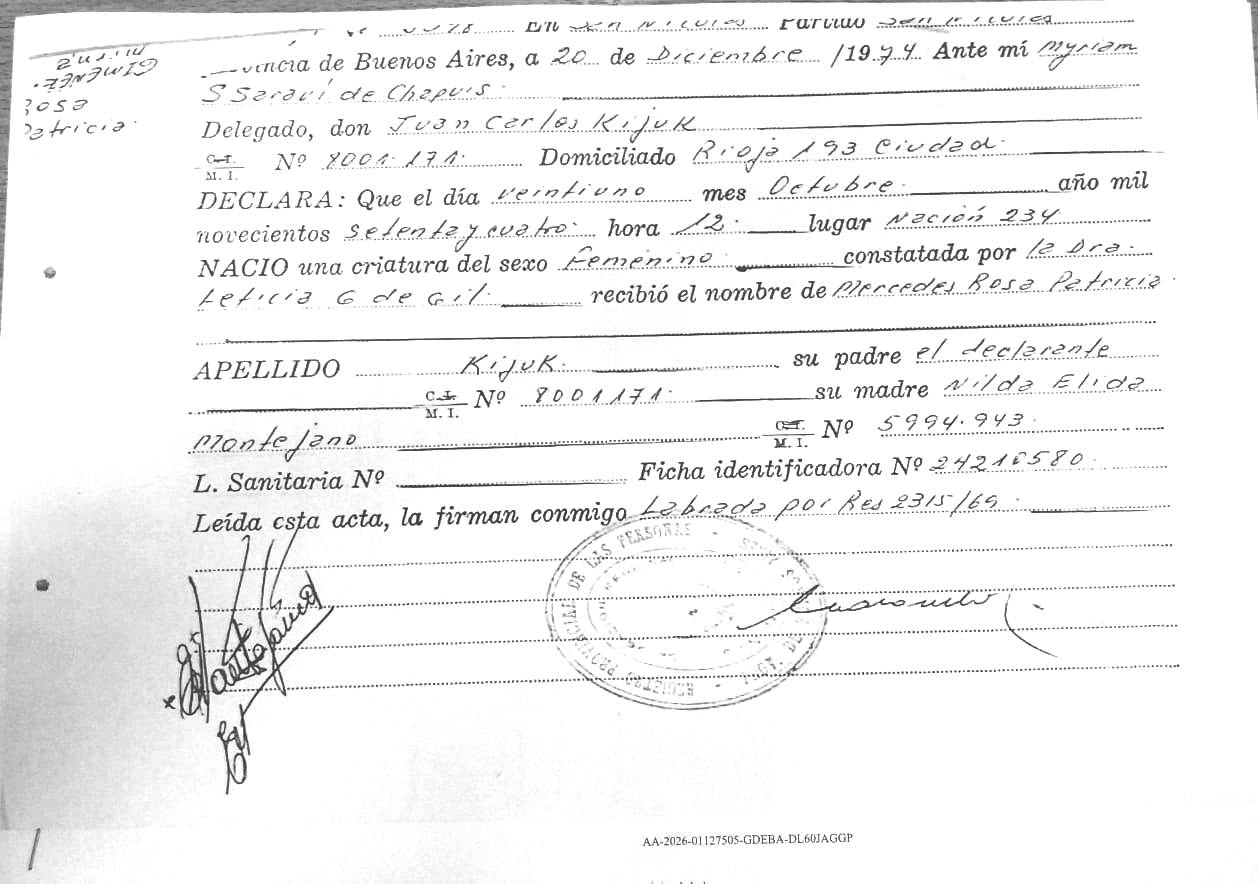 En San Nicolás Partido San Nicolás
vincia de Buenos Aires, a 20 de Diciembre /1974. Ante mí Myriam
S Saraví de Chapuis.
Delegado, don Juan Carlos Kijuk
C.I. M. I. Nº 8001.171. Domiciliado Rioja 193 Ciudad.
DECLARA: Que el día veintiuno mes Octubre. año mil
novecientos setenta y cuatro. hora 12. lugar Nación 234
NACIO una criatura del sexo Femenino constatada por la Dra.
Leticia G de Gil. recibió el nombre de Mercedes Rosa Patricia.
APELLIDO Kijuk. su padre el declarante
C.I. M. I. Nº 8001171. su madre Nilda Elida
Montejano C.I. M. I. Nº 5994.943.
L. Sanitaria Nº Ficha identificadora Nº 24216580.
Leída esta acta, la firman conmigo Labrada por Res 2315/69.
GIMENEZ.
Rosa
Patricia.
REGISTRO PROVINCIAL DE LAS PERSONAS
AA-2026-01127505-GDEBA-DL60JAGGP